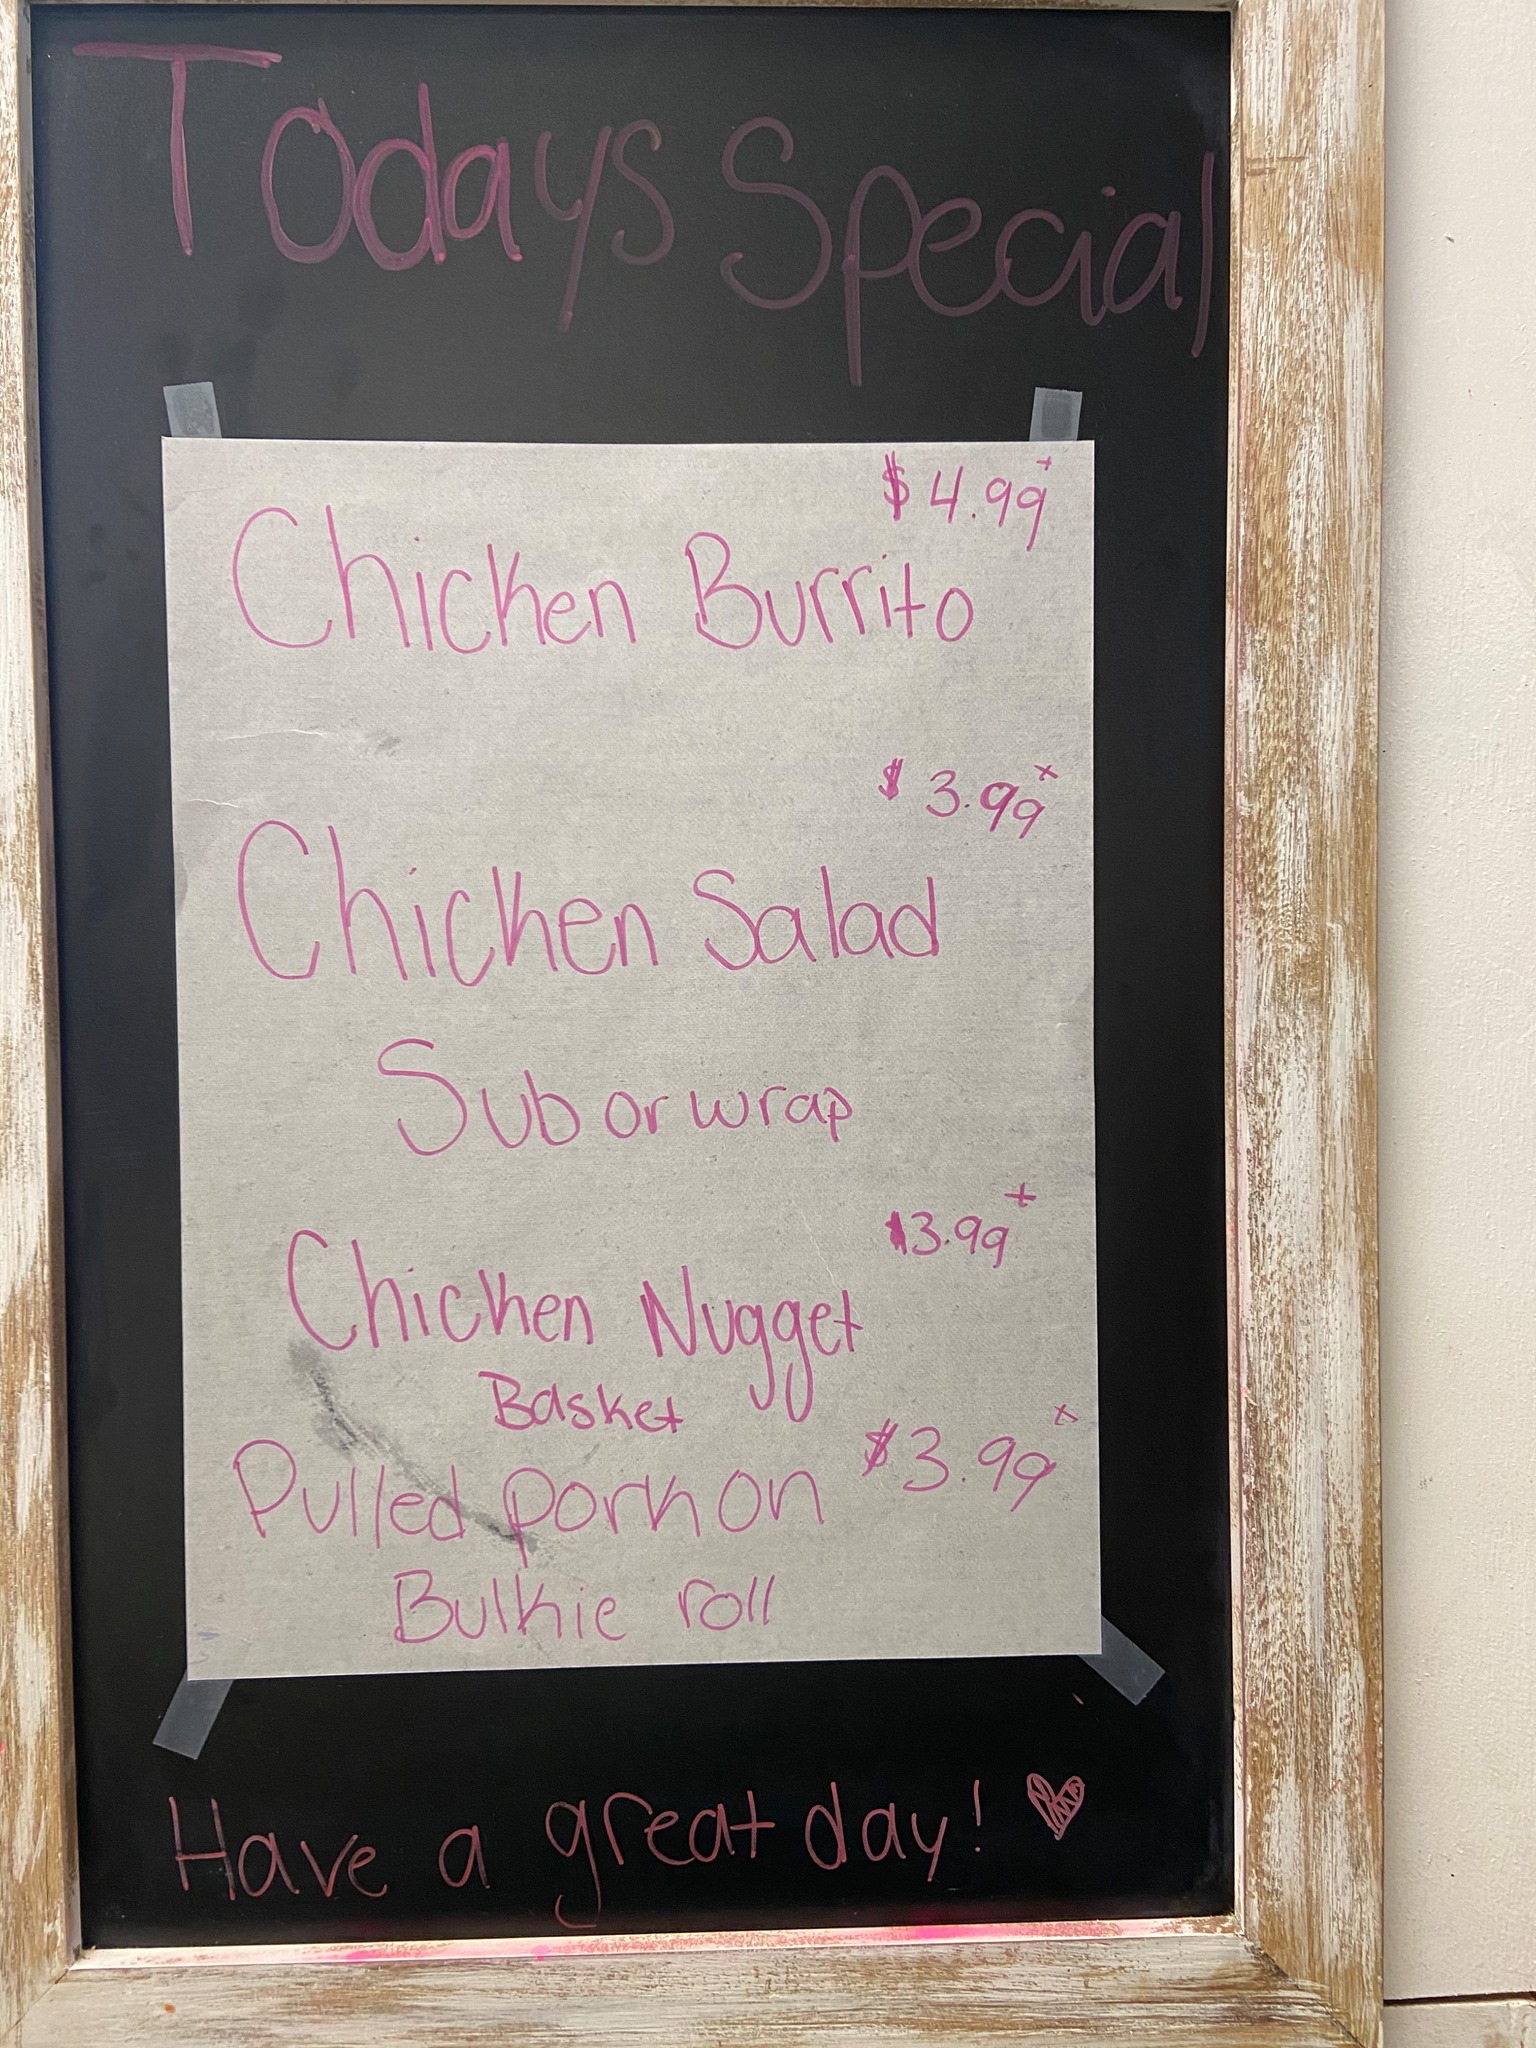 Todays Special
$4.99+
Chicken Burrito
$3.99+
Chicken Salad
Sub or wrap
$3.99+
Chicken Nugget
Basket
Pulled pork on $3.99+
Bulkie roll
Have a great day! ♥